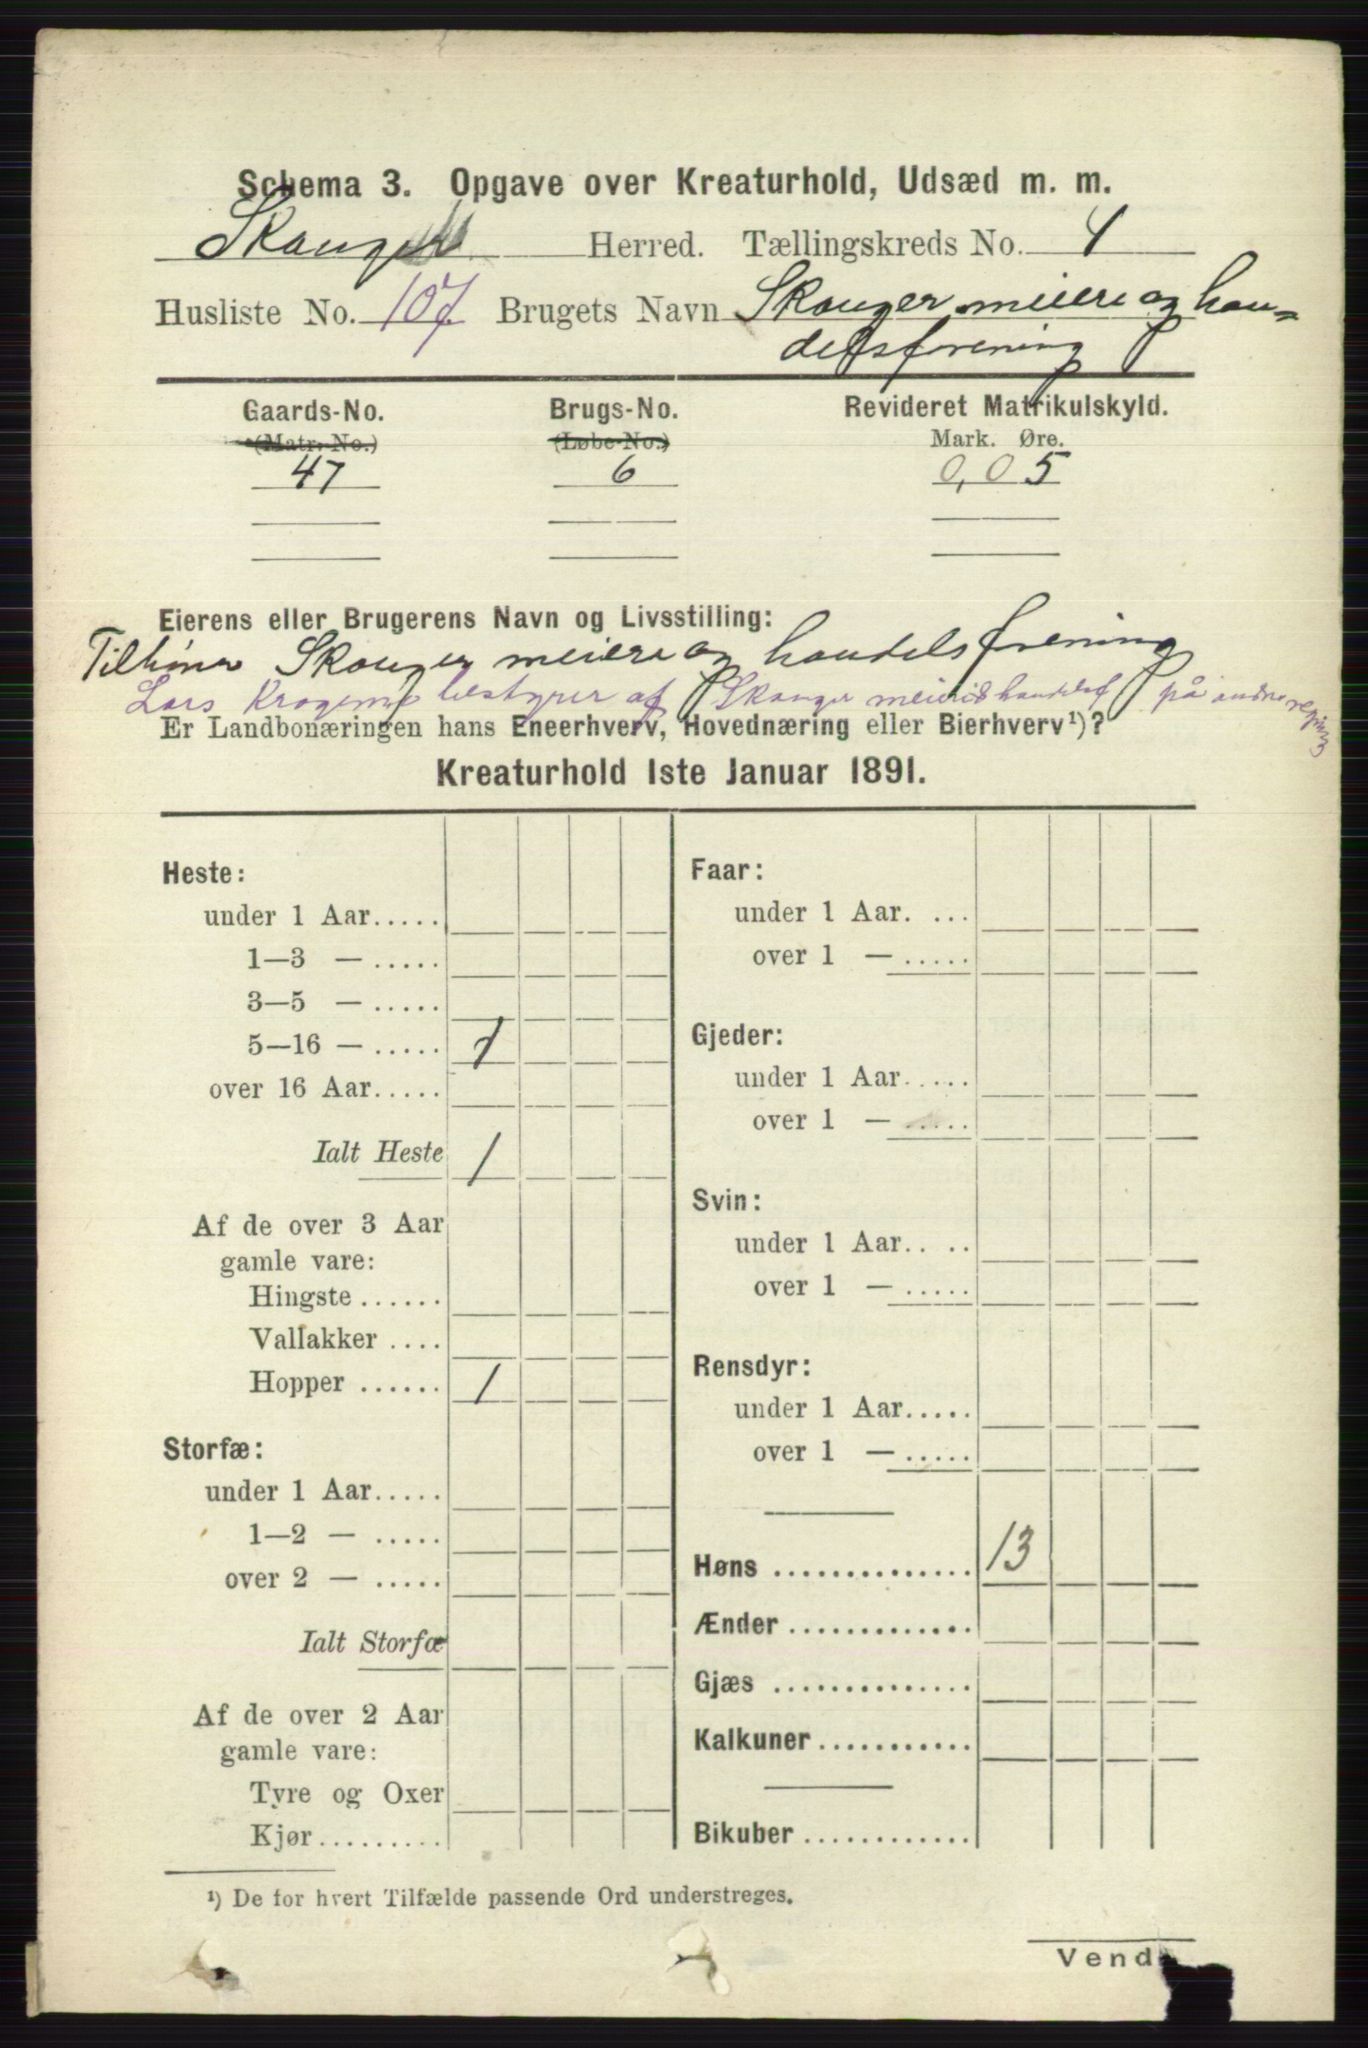 Schema 3. Opgave over Kreaturhold, Udsæd m. m.
Skauger Herred. Tællingskreds No. 4
Husliste No. 107. Brugets Navn Skauger meieri og han=
delsforening
Gaards-No. Brugs-No. Revideret Matrikulskyld.
(Matr. No.) (Løbe-No.) Mark. Øre.
47 6 0,05
Eierens eller Brugerens Navn og Livsstilling:
Tilhører Skauger meieri og handelsforening
Lars af Skauger på andres
Er Landbonæringen hans Eneerhverv, Hovednæring eller Bierhverv¹)?
Kreaturhold 1ste Januar 1891.
Heste:
under 1 Aar.....
1—3 — .....
3—5 — .....
5—16 — ..... 1
over 16 Aar.....
Ialt Heste 1
Af de over 3 Aar
gamle vare:
Hingste ......
Vallakker ....
Hopper ...... 1
Storfæ:
under 1 Aar.....
1—2 — .....
over 2 — .....
Ialt Storfæ
Af de over 2 Aar
gamle vare:
Tyre og Oxer
Kjør.........
Faar:
under 1 Aar. ...
over 1 — .....
Gjeder:
under 1 Aar.....
over 1 — .....
Svin:
under 1 Aar.. ..
over 1 — .....
Rensdyr:
under 1 Aar.....
over 1 — .....
Høns .............. 13
Ænder .............
Gjæs ..............
Kalkuner...........
Bikuber ............
¹) De for hvert Tilfælde passende Ord understreges.
Vend